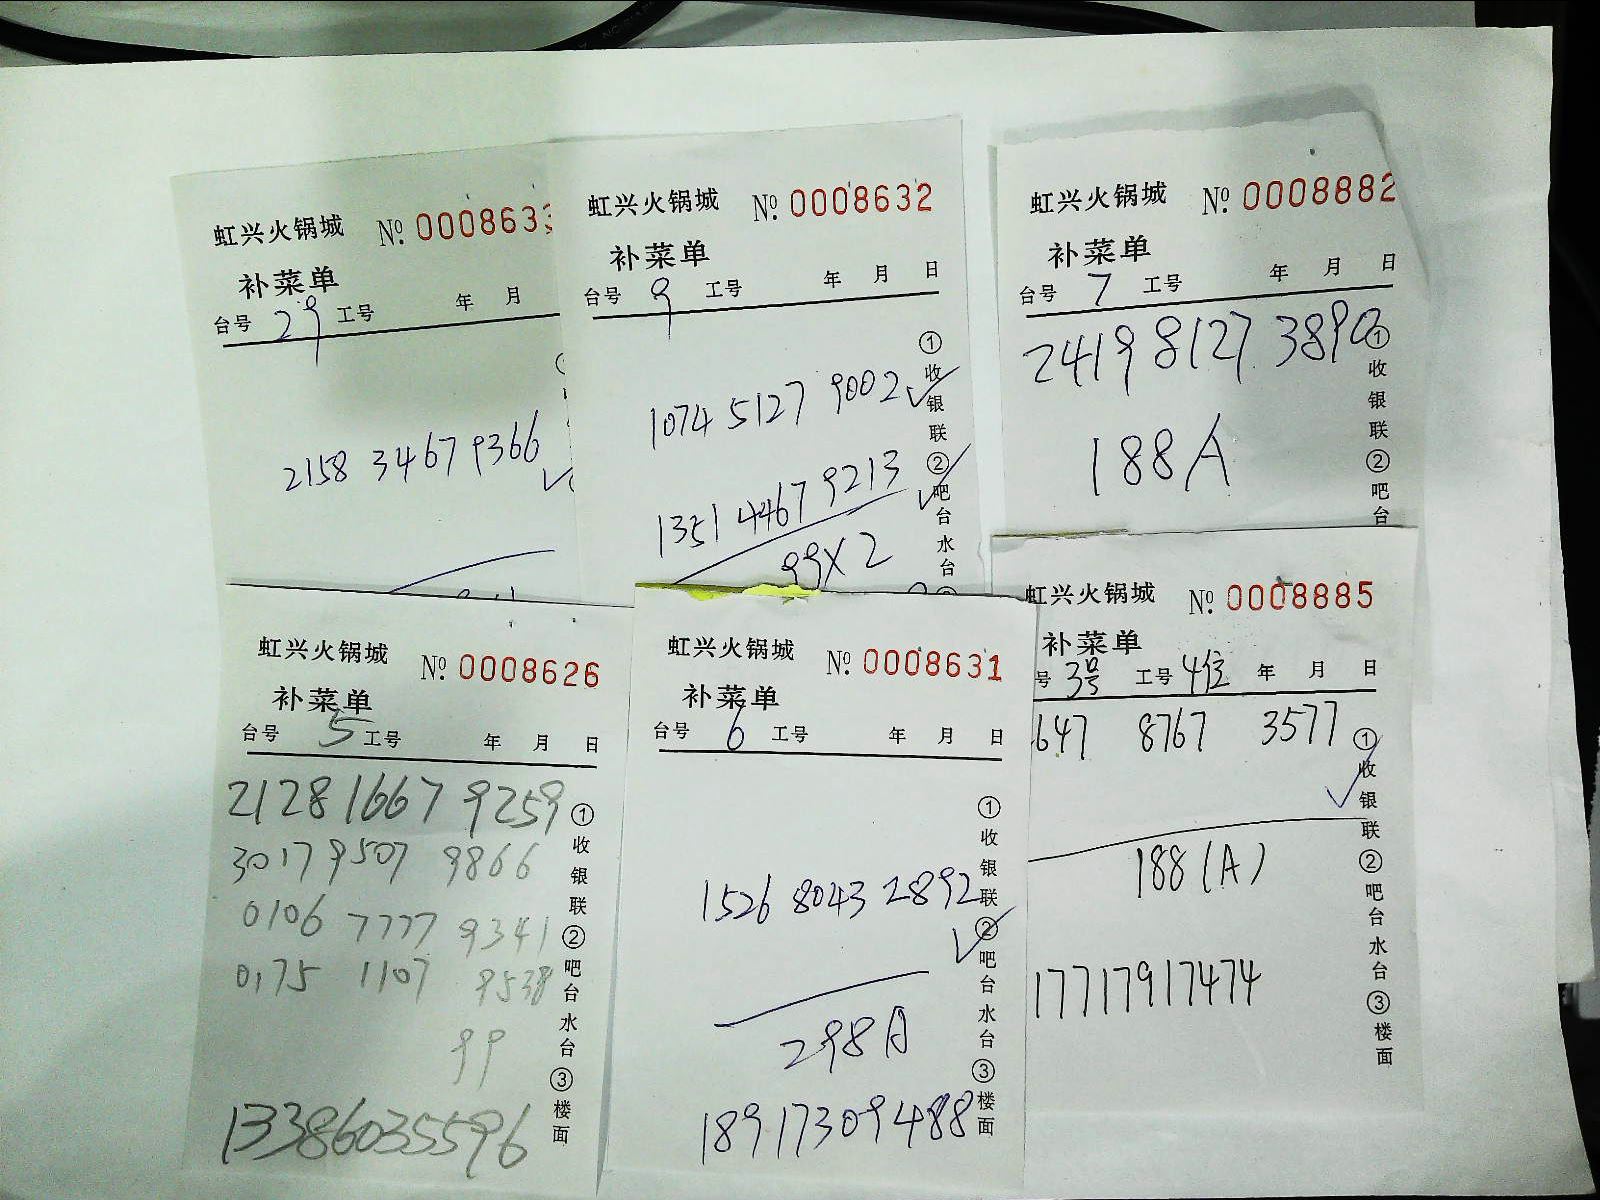 虹兴火锅城 № 0008633
补菜单
台号 29 工号 年 月
2158 3467 9366
虹兴火锅城 № 0008632
补菜单
台号 9 工号 年 月 日
1074 5127 9002
1351 4467 9213
99X2
①收银联②吧台水台
虹兴火锅城 № 0008882
补菜单
台号 7 工号 年 月 日
2419 8127 3890
188A
①收银联②吧台
虹兴火锅城 № 0008626
补菜单
台号 5 工号 年 月 日
2128 1667 9259
3017 9507 9866
0106 7777 9341
0175 1107 9538
99
13386035596
①收银联②吧台水台③楼面
虹兴火锅城 № 0008631
补菜单
台号 6 工号 年 月 日
1526 8043 2892
298A
18917309488
①收银联②吧台水台③楼面
虹兴火锅城 № 0008885
补菜单
号 3号 工号 4位 年 月 日
647 8767 3577
188(A)
17717917474
①收银联②吧台水台③楼面